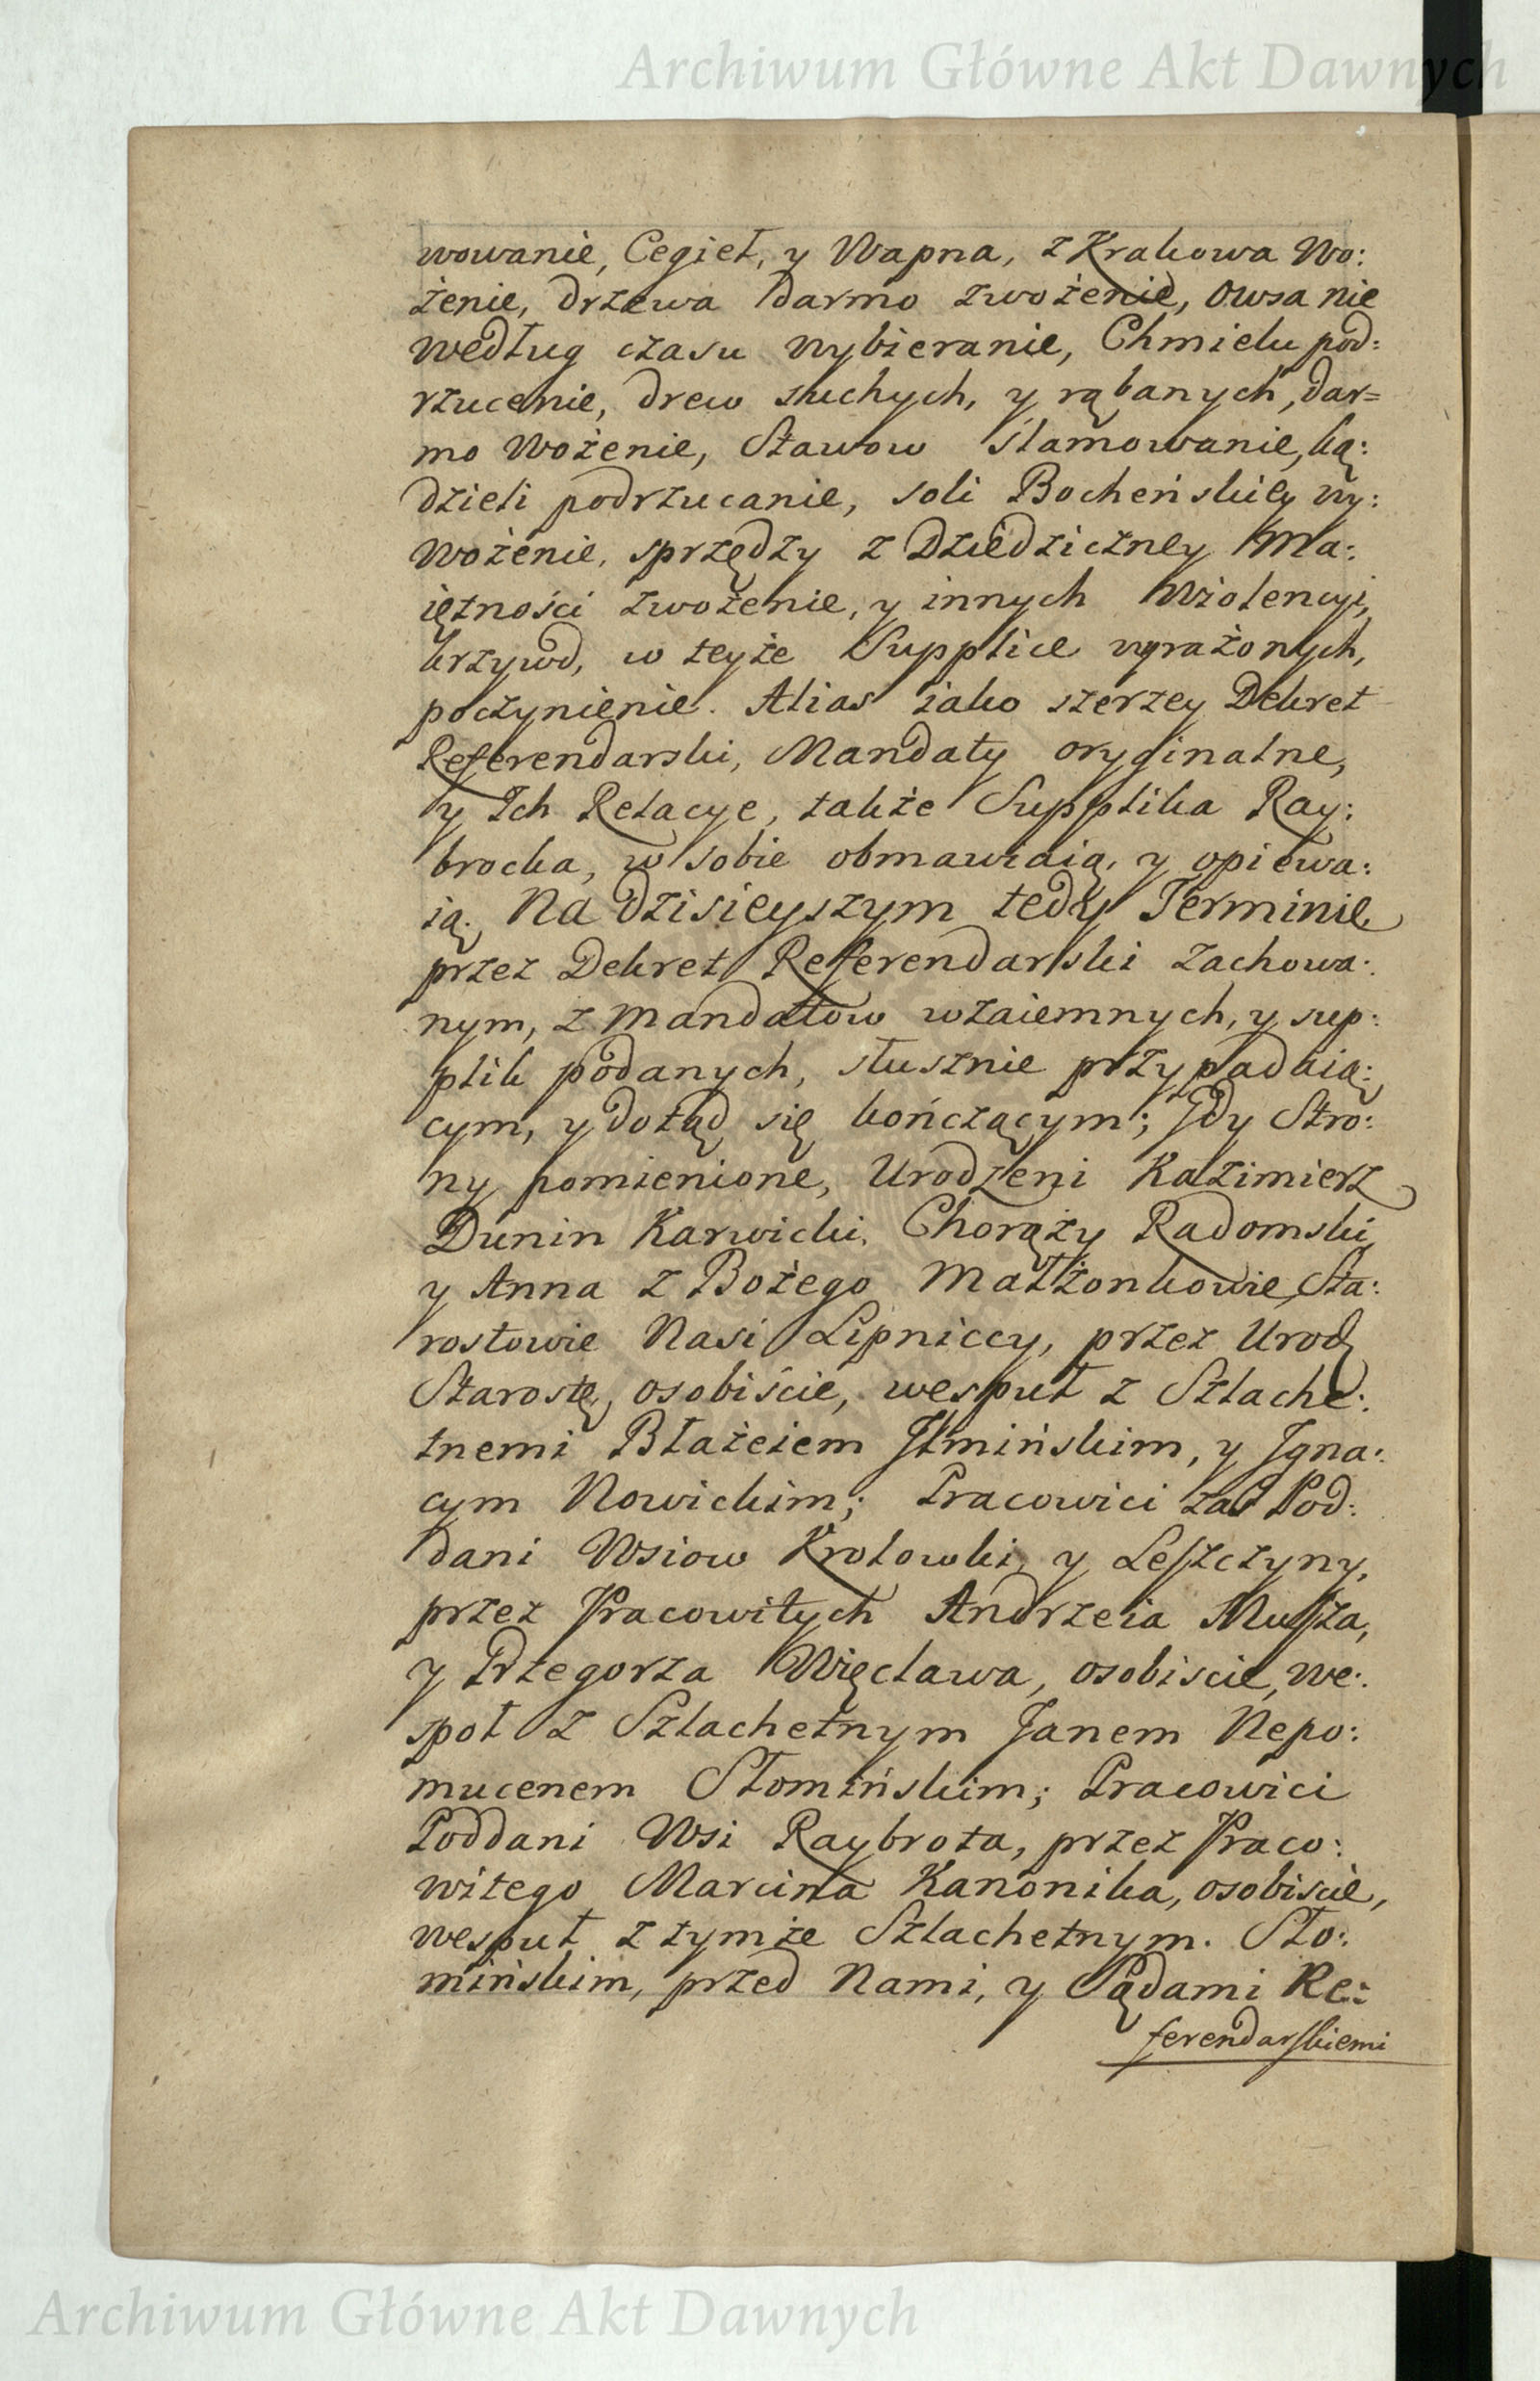 Archiwum Główne Akt Dawnych
wowanie, Cegieł, y Wapna, z Krakowa Wo:
żenie, drzewa darmo zwożenie, Owsa nie
według czasu wybieranie, Chmielu pod:
rzucenie, drew suchych, y rąbanych, dar=
mo Wożenie, Stawow słamowanie, ką:
dzieli podrzucanie, soli Bocheńskiey wy:
Wożenie, sprzędzy z Dziedziczney Ma:
iętności zwożenie, y innych Wiolencyi,
krzywd, w teyże Supplice wyrażonych,
poczynienie. Alias iako szerzey Dekret
Referendarski, Mandaty oryginalne,
y Ich Relacye, także Supplika Ray:
brocka, w sobie obmawiaią, y opiewa:
ią. Na Dzisieyszym tedy Terminie
przez Dekret Referendarski zachowa:
nym, z Mandatow wzaiemnych, y sup:
plik podanych, słusznie przypadaią:
cym, y dotąd się kończącym; Gdy Stro:
ny pomienione, Urodzeni Kazimierz
Dunin Karwicki, Chorąży Radomski,
y Anna z Bożego Małżonkowie, Sta:
rostowie Nasi Lipniccy, przez Urodz
Starostę, osobiście, wespuł z Szlache:
tnemi Błażeiem Jłmińskim, y Jgna:
cym Nowickim; Pracowici zaś Pod:
dani Wsiow Krolowki, y Leszczyny,
przez Pracowitych Andrzeia Musza,
y Grzegorza Więcława, osobiscie, we:
społ z Szlachetnym Janem Nepo:
mucenem Słomińskim; Pracowici
Poddani Wsi Raybrota, przez Praco:
witego Marcina Kanonika, osobiscie,
wespuł z tymże Szlachetnym. Sło:
mińskim, przed Nami, y Sądami Re:
ferendarskiemi
Archiwum Główne Akt Dawnych